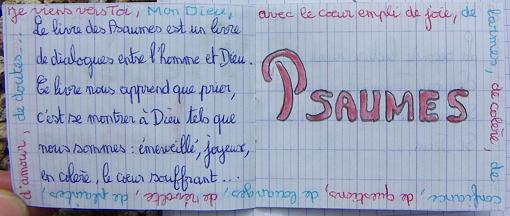 Je viens vers Toi, Mon Dieu, avec le cœur empli de joie, de
larmes, de colère, de
confiance, de questions, de louanges, de révolte, de plaintes,
d'amour, de doutes...
Le livre des Psaumes est un livre
de dialogues entre l'homme et Dieu.
Ce livre nous apprend que prier,
c'est se montrer à Dieu tels que
nous sommes : émerveillé, joyeux,
en colère, le cœur souffrant...
PSAUMES